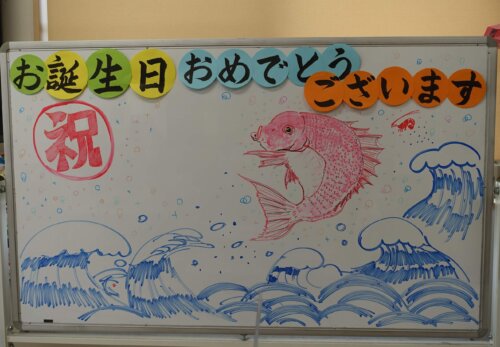 お誕生日おめでとう
ございます
祝